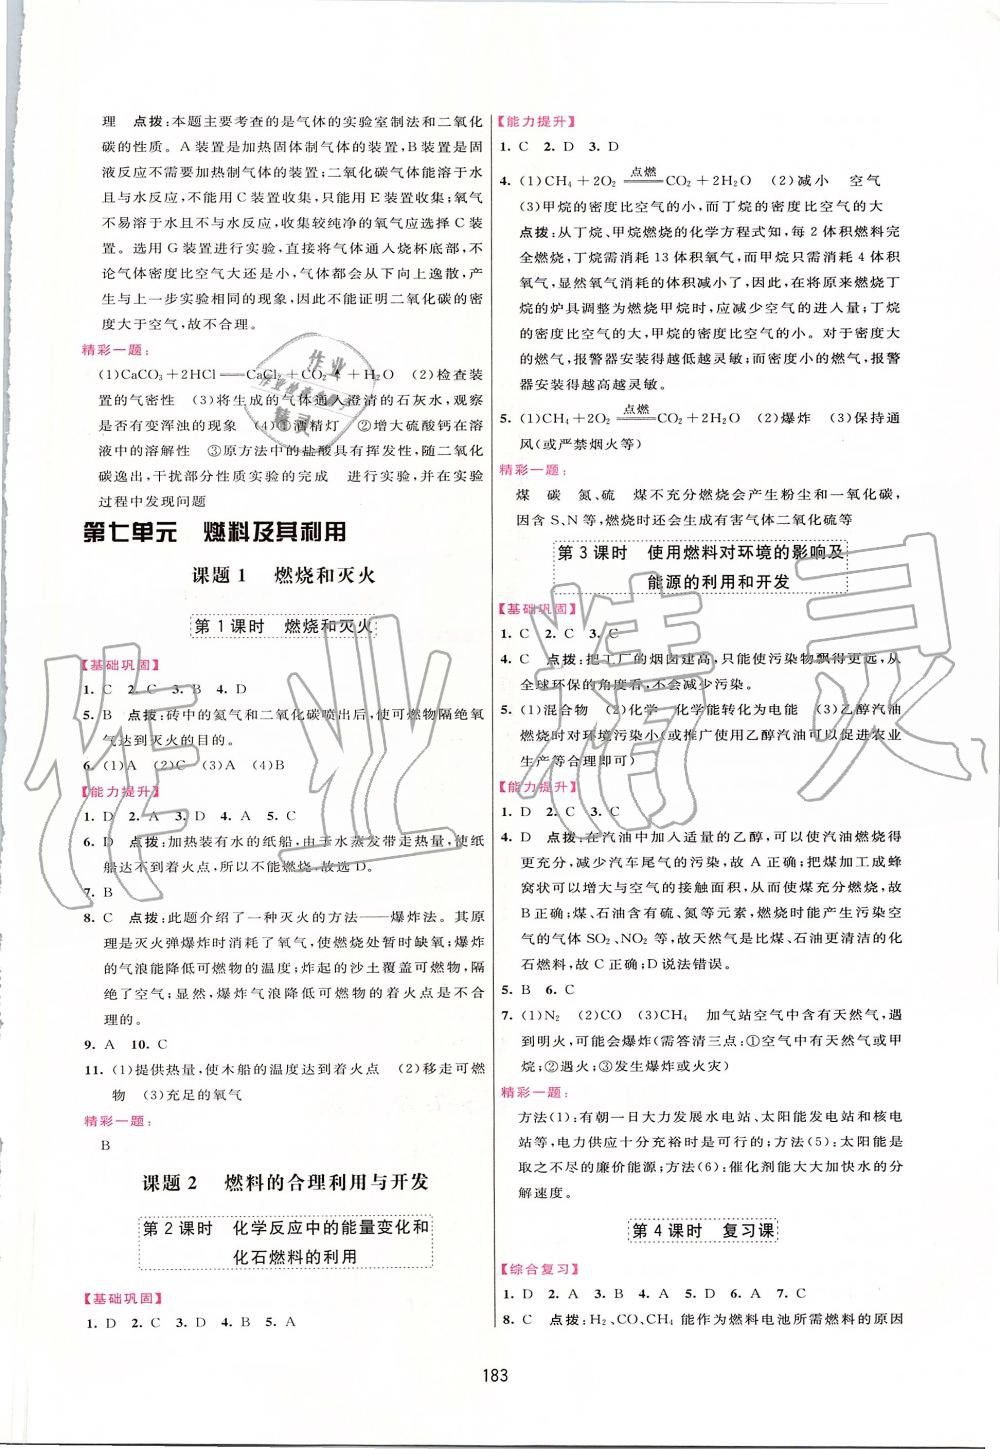 理　点拨:本题主要考查的是气体的实验室制法和二氧化
碳的性质。A装置是加热固体制气体的装置,B装置是固
液反应不需要加热制气体的装置;二氧化碳气体能溶于水
且与水反应,不能用C装置收集,只能用E装置收集;氧气
不易溶于水且不与水反应,收集较纯净的氧气应选择C装
置。选用G装置进行实验,直接将气体通入烧杯底部,不
论气体密度比空气大还是小,气体都会从下向上逸散,产
生与上一步实验相同的现象,因此不能证明二氧化碳的密
度大于空气,故不合理。
精彩一题:
(1)CaCO₃+2HCl══CaCl₂+CO₂↑+H₂O　(2)检查装
置的气密性　(3)将生成的气体通入澄清的石灰水,观察
是否有变浑浊的现象　(4)①酒精灯　②增大硫酸钙在溶
液中的溶解性　③原方法中的盐酸具有挥发性,随二氧化
碳逸出,干扰部分性质实验的完成　进行实验,并在实验
过程中发现问题
第七单元　燃料及其利用
课题1　燃烧和灭火
第1课时　燃烧和灭火
【基础巩固】
1. C　2. C　3. B　4. D
5. B　点拨:砖中的氦气和二氧化碳喷出后,使可燃物隔绝氧
气达到灭火的目的。
6. (1)A　(2)C　(3)A　(4)B
【能力提升】
1. D　2. A　3. D　4. A　5. C
6. D　点拨:加热装有水的纸船,由于水蒸发带走热量,使纸
船达不到着火点,所以不能燃烧,故选D。
7. B
8. C　点拨:此题介绍了一种灭火的方法——爆炸法。其原
理是灭火弹爆炸时消耗了氧气,使燃烧处暂时缺氧;爆炸
的气浪能降低可燃物的温度;炸起的沙土覆盖可燃物,隔
绝了空气;显然,爆炸气浪降低可燃物的着火点是不合
理的。
9. A　10. C
11. (1)提供热量,使木船的温度达到着火点　(2)移走可燃
物　(3)充足的氧气
精彩一题:
B
课题2　燃料的合理利用与开发
第2课时　化学反应中的能量变化和
化石燃料的利用
【基础巩固】
1. D　2. C　3. D　4. B　5. A
【能力提升】
1. C　2. D　3. D
4. (1)CH₄+2O₂ ══点燃══ CO₂+2H₂O　(2)减小　空气
(3)甲烷的密度比空气的小,而丁烷的密度比空气的大
点拨:从丁烷、甲烷燃烧的化学方程式知,每2体积燃料完
全燃烧,丁烷需消耗13体积氧气,而甲烷只需消耗4体积
氧气,显然氧气消耗的体积减小了,因此,在将原来燃烧丁
烷的炉具调整为燃烧甲烷时,应减少空气的进入量;丁烷
的密度比空气的大,甲烷的密度比空气的小。对于密度大
的燃气,报警器安装得越低越灵敏;而密度小的燃气,报警
器安装得越高越灵敏。
5. (1)CH₄+2O₂ ══点燃══ CO₂+2H₂O　(2)爆炸　(3)保持通
风(或严禁烟火等)
精彩一题:
煤　碳　氮、硫　煤不充分燃烧会产生粉尘和一氧化碳,
因含S、N等,燃烧时还会生成有害气体二氧化硫等
第3课时　使用燃料对环境的影响及
能源的利用和开发
【基础巩固】
1. C　2. C　3. C
4. C　点拨:把工厂的烟囱建高,只能使污染物飘得更远,从
全球环保的角度看,不会减少污染。
5. (1)混合物　(2)化学　化学能转化为电能　(3)乙醇汽油
燃烧时对环境污染小(或推广使用乙醇汽油可以促进农业
生产等合理即可)
【能力提升】
1. D　2. C　3. C
4. D　点拨:在汽油中加入适量的乙醇,可以使汽油燃烧得
更充分,减少汽车尾气的污染,故A正确;把煤加工成蜂
窝状可以增大与空气的接触面积,从而使煤充分燃烧,故
B正确;煤、石油含有硫、氮等元素,燃烧时能产生污染空
气的气体SO₂、NO₂等,故天然气是比煤、石油更清洁的化
石燃料,故C正确;D说法错误。
5. B　6. C
7. (1)N₂　(2)CO　(3)CH₄　加气站空气中含有天然气,遇
到明火,可能会爆炸(需答清三点:①空气中有天然气或甲
烷;②遇火;③发生爆炸或火灾)
精彩一题:
方法(1):有朝一日大力发展水电站、太阳能发电站和核电
站等,电力供应十分充裕时是可行的;方法(5):太阳能是
取之不尽的廉价能源;方法(6):催化剂能大大加快水的分
解速度。
第4课时　复习课
【综合复习】
1. D　2. A　3. B　4. A　5. D　6. A　7. C
8. C　点拨:H₂、CO、CH₄能作为燃料电池所需燃料的原因
183
作业精灵